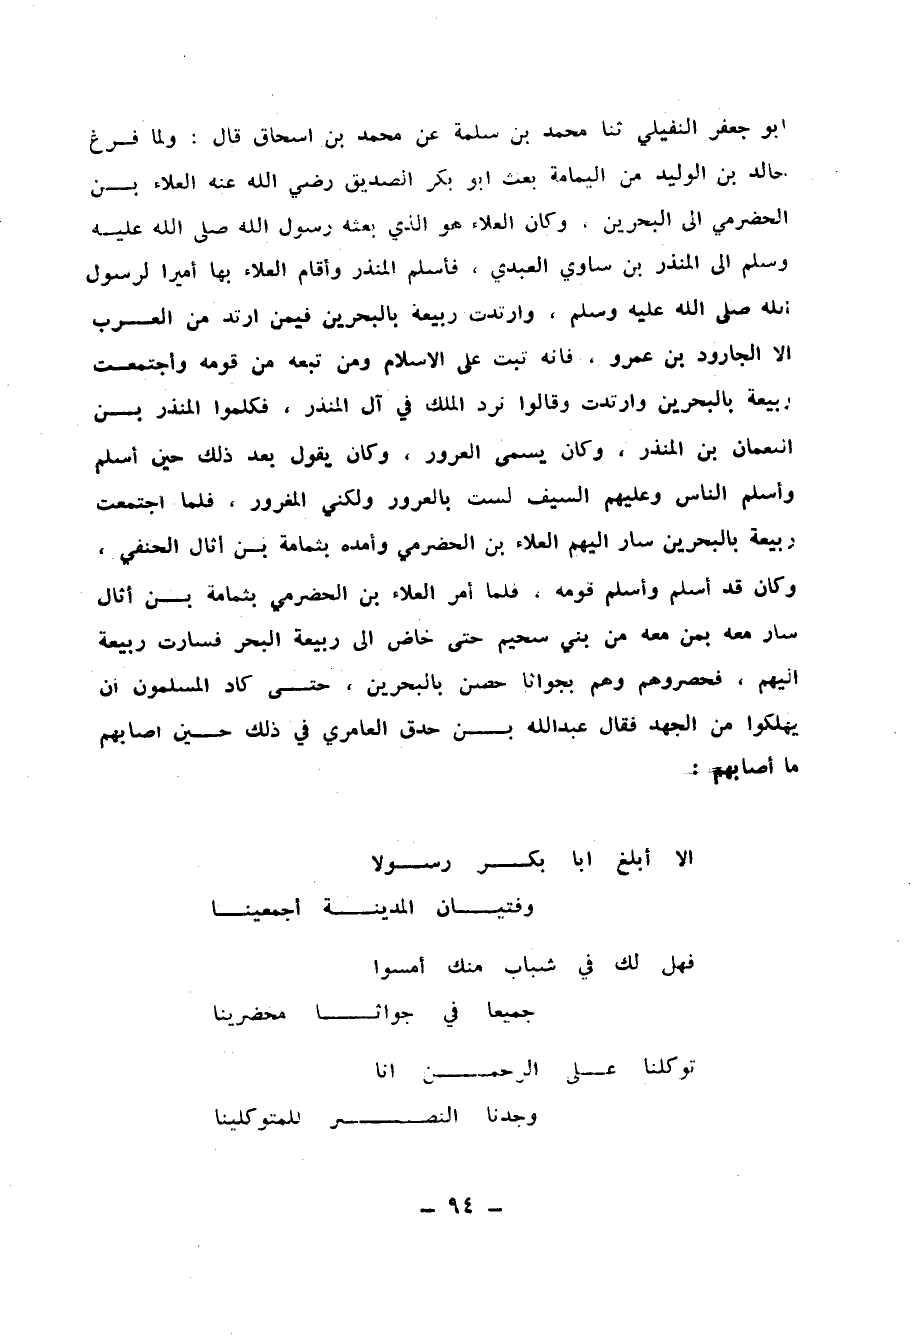 ابو جعفر النفيلي ثنا محمد بن سلمة عن محمد بن اسحاق قال : ولما فرغ
خالد بن الوليد من اليمامة بعث ابو بكر الصديق رضي الله عنه العلاء بن
الحضرمي الى البحرين . وكان العلاء هو الذي بعثه رسول الله صلى الله عليه
وسلم الى المنذر بن ساوي العبدي ، فأسلم المنذر وأقام العلاء بها أميرا لرسول
الله صلى الله عليه وسلم ، وارتدت ربيعة بالبحرين فيمن ارتد من العرب
الا الجارود بن عمرو ، فانه ثبت على الاسلام ومن تبعه من قومه وأجتمعت
ربيعة بالبحرين وارتدت وقالوا نرد الملك في آل المنذر ، فكلموا المنذر بن
النعمان بن المنذر ، وكان يسمى العرور ، وكان يقول بعد ذلك حين أسلم
وأسلم الناس وعليهم السيف لست بالعرور ولكني المغرور ، فلما اجتمعت
ربيعة بالبحرين سار اليهم العلاء بن الحضرمي وأمده بثمامة بن أثال الحنفي ،
وكان قد أسلم وأسلم قومه . فلما أمر العلاء بن الحضرمي بثمامة بن أثال
سار معه بمن معه من بني سحيم حتى خاض الى ربيعة البحر فسارت ربيعة
اليهم ، فحصروهم وهم بجواثا حصن بالبحرين ، حتى كاد المسلمون ان
يهلكوا من الجهد فقال عبدالله بن حدق العامري في ذلك حين اصابهم
ما أصابهم :
الا أبلغ ابا بكر رسولا
وفتيان المدينة أجمعينا
فهل لك في شباب منك أمسوا
جميعا في جواثا محضرينا
توكلنا على الرحمن انا
وجدنا النصر للمتوكلينا
– ٩٤ –